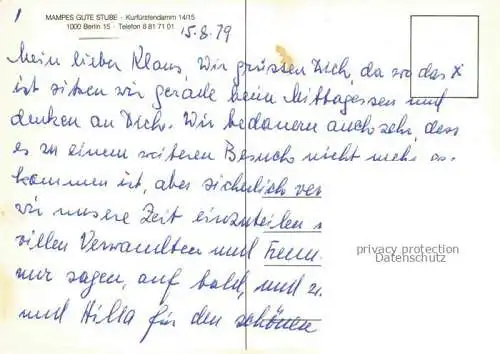 MAMPES GUTE STUBE · Kurfürstendamm 14/15
1000 Berlin 15 · Telefon 8 81 71 01
15.8.79
Mein lieber Klaus, Wir grüssen Dich, da wo das x
ist sitzen wir gerade beim Mittagessen und
denken an Dich. Wir bedauern auch sehr, dass
es zu einem weiteren Besuch nicht mehr ge-
kommen ist, aber sicherlich ver
wir unsere Zeit einzuteilen
vielen Verwandten und Freun
nur sagen, auf bald, und
und Hilla für den schönen
privacy protection
Datenschutz